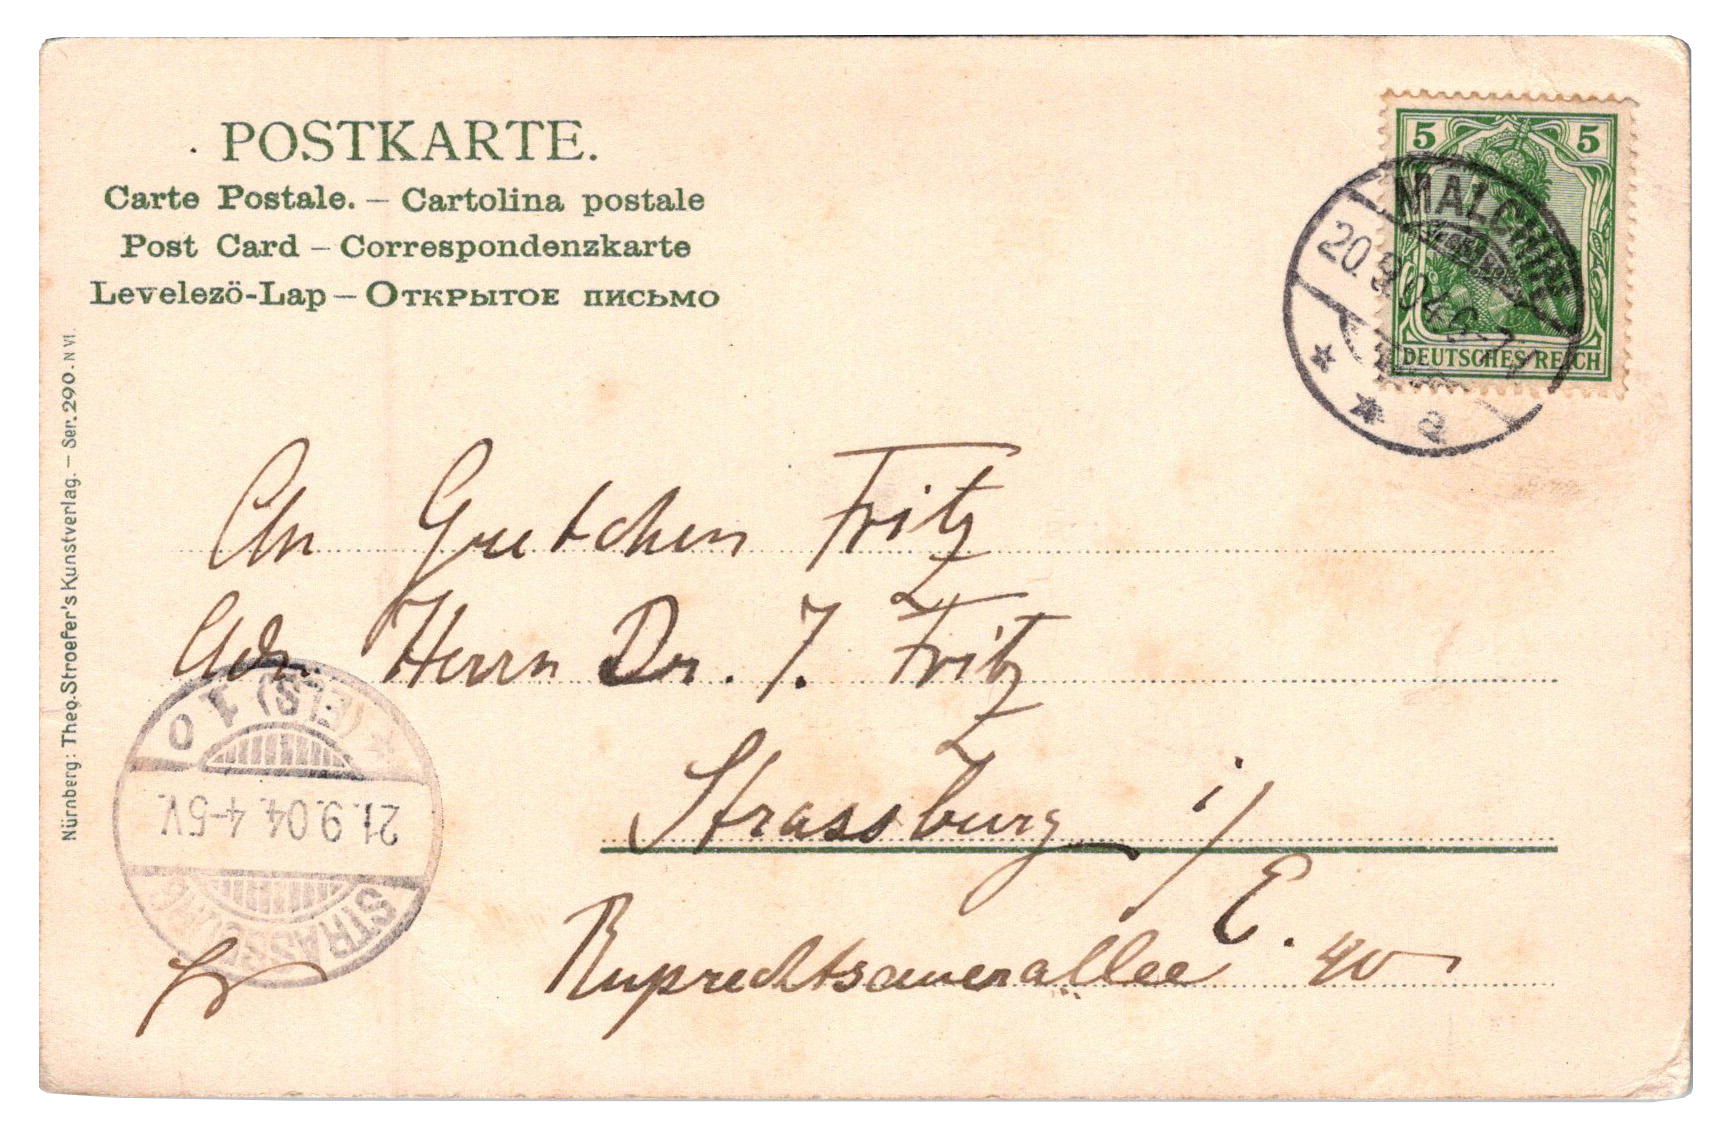 POSTKARTE.
Carte Postale. – Cartolina postale
Post Card – Correspondenzkarte
Levelezö-Lap – Открытое письмо
Nürnberg: Theo. Stroefer's Kunstverlag. – Ser. 290. N VI.
5 5
DEUTSCHES REICH
MALCHIN
20.9.04.6-7
* * a
An Gretchen Fritz
Adr. Herrn Dr. J. Fritz
Strassburg i/
E.
Ruprechtsauerallee 40
STRASSBURG
21.9.04.4-5V.
* (ELS) 10